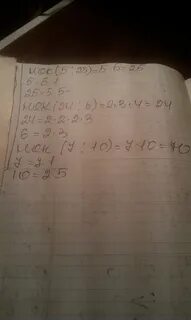 НОК(5; 25)=5·5=25
5=5·1
25=5·5
НОК(24; 6)=2·3·4=24
24=2·2·2·3
6=2·3
НОК(7; 10)=7·10=70
7=7·1
10=2·5